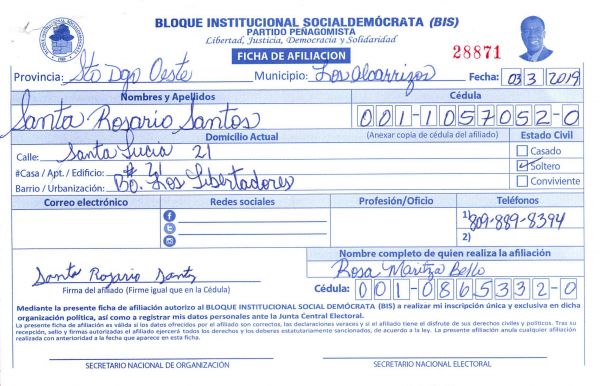 BLOQUE INSTITUCIONAL SOCIALDEMÓCRATA (BIS)
PARTIDO PEÑAGOMISTA
Libertad, Justicia, Democracia y Solidaridad
FICHA DE AFILIACION
28871
Provincia: Sto Dgo Oeste Municipio: Los Alcarrizos Fecha: 03 3 2019
Nombres y Apellidos Cédula
Santa Rosario Santos 001-1057052-0
Domicilio Actual (Anexar copia de cédula del afiliado) Estado Civil
Calle: Santa Lucia 21 Casado
#Casa / Apt. / Edificio: # 21 Soltero
Barrio / Urbanización: Bo. Los Libertadores Conviviente
Correo electrónico Redes sociales Profesión/Oficio Teléfonos
1) 809-889-8394
2)
Nombre completo de quien realiza la afiliación
Santa Rosario Santos Rosa Maritza Bello
Firma del afiliado (Firme igual que en la Cédula) Cédula: 001-0865332-0
Mediante la presente ficha de afiliación autorizo al BLOQUE INSTITUCIONAL SOCIAL DEMÓCRATA (BIS) a realizar mi inscripción única y exclusiva en dicha
organización política, así como a registrar mis datos personales ante la Junta Central Electoral.
La presente ficha de afiliación es válida si los datos ofrecidos por el afiliado son correctos, las declaraciones veraces y si el afiliado tiene el disfrute de sus derechos civiles y políticos. Tras su
recepción, sello y firmas autorizadas el afiliado ejercerá todos los derechos y los deberes estatutariamente sancionados, de acuerdo a la ley. La presente afiliación anula cualquier afiliación
realizada con anterioridad a la fecha que aparece en esta ficha.
SECRETARIO NACIONAL DE ORGANIZACIÓN SECRETARIO NACIONAL ELECTORAL